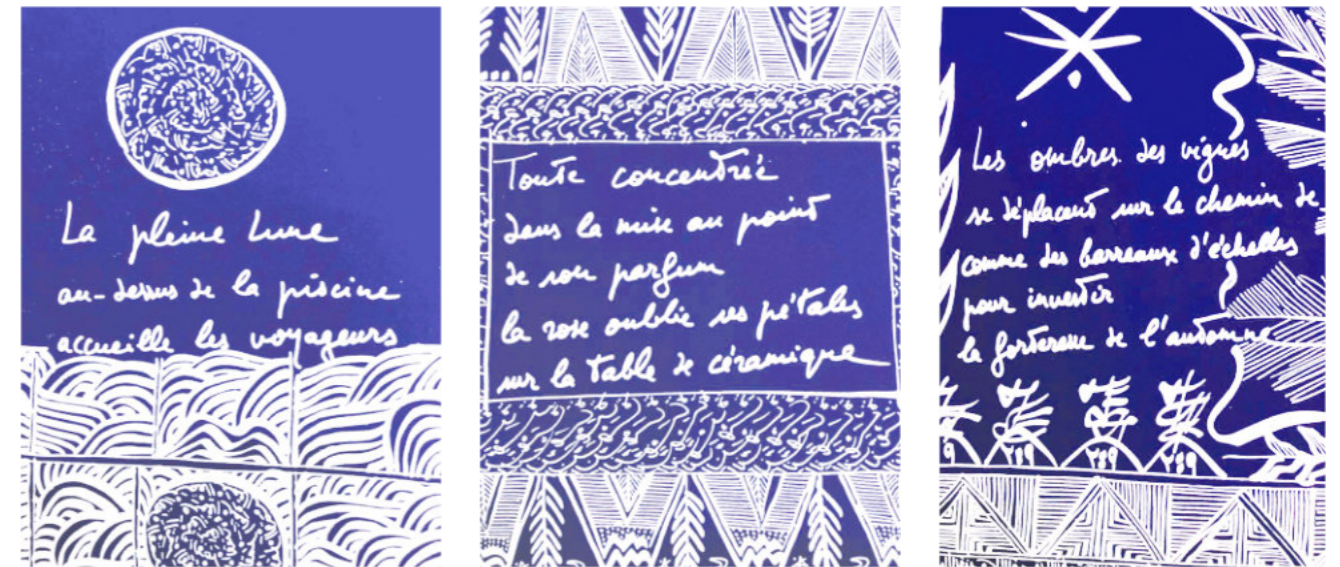 La pleine Lune
au-dessus de la piscine
accueille les voyageurs
Toute concentrée
dans la mise au point
de son parfum
la rose oublie ses pétales
sur la table de céramique
Les ombres des vignes
se déplacent sur le chemin de
comme des barreaux d'échelles
pour investir
la forteresse de l'automne